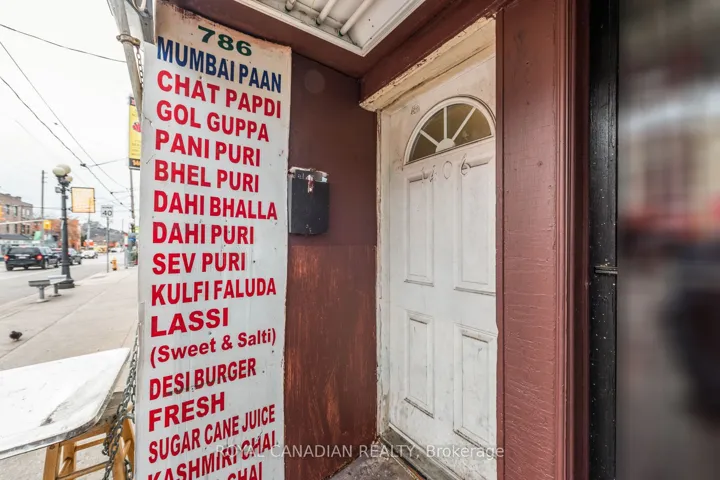 786
MUMBAI PAAN
CHAT PAPDI
GOL GUPPA
PANI PURI
BHEL PURI
DAHI BHALLA
DAHI PURI
SEV PURI
KULFI FALUDA
LASSI
(Sweet & Salti)
DESI BURGER
FRESH
SUGAR CANE JUICE
KASHMIRI CHAI
CHAI
ROYAL CANADIAN REALTY, Brokerage
40